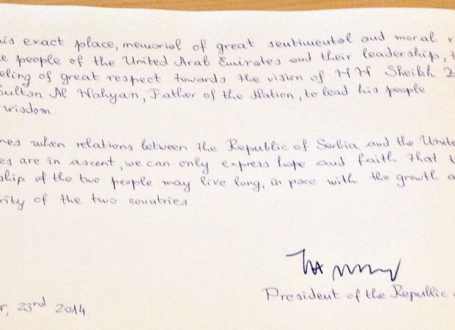 is exact place, memorial of great sentimental and moral
people of the United Arab Emirates and their leadership,
eling of great respect towards the vision of HH Sheikh
Sultan Al Nahyan, Father of the Nation, to lead his people
wisdom.
when relations between the Republic of Serbia and the United
es are in ascent, we can only express hope and faith that
ship of the two people may live long, in pace with the growth
rity of the two countries
President of the Republic
r, 23rd 2014